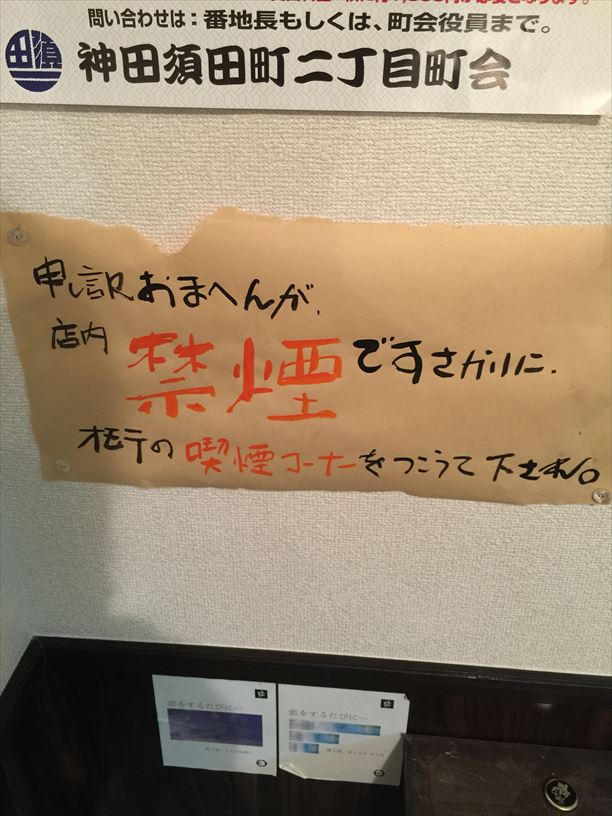 問い合わせは：番地長もしくは、町会役員まで。
田須
神田須田町二丁目町会
申し訳おまへんが、
店内 禁煙ですさかいに、
オモテの喫煙コーナーをつこうて下され。
恋をするたびに…
恋をするたびに…